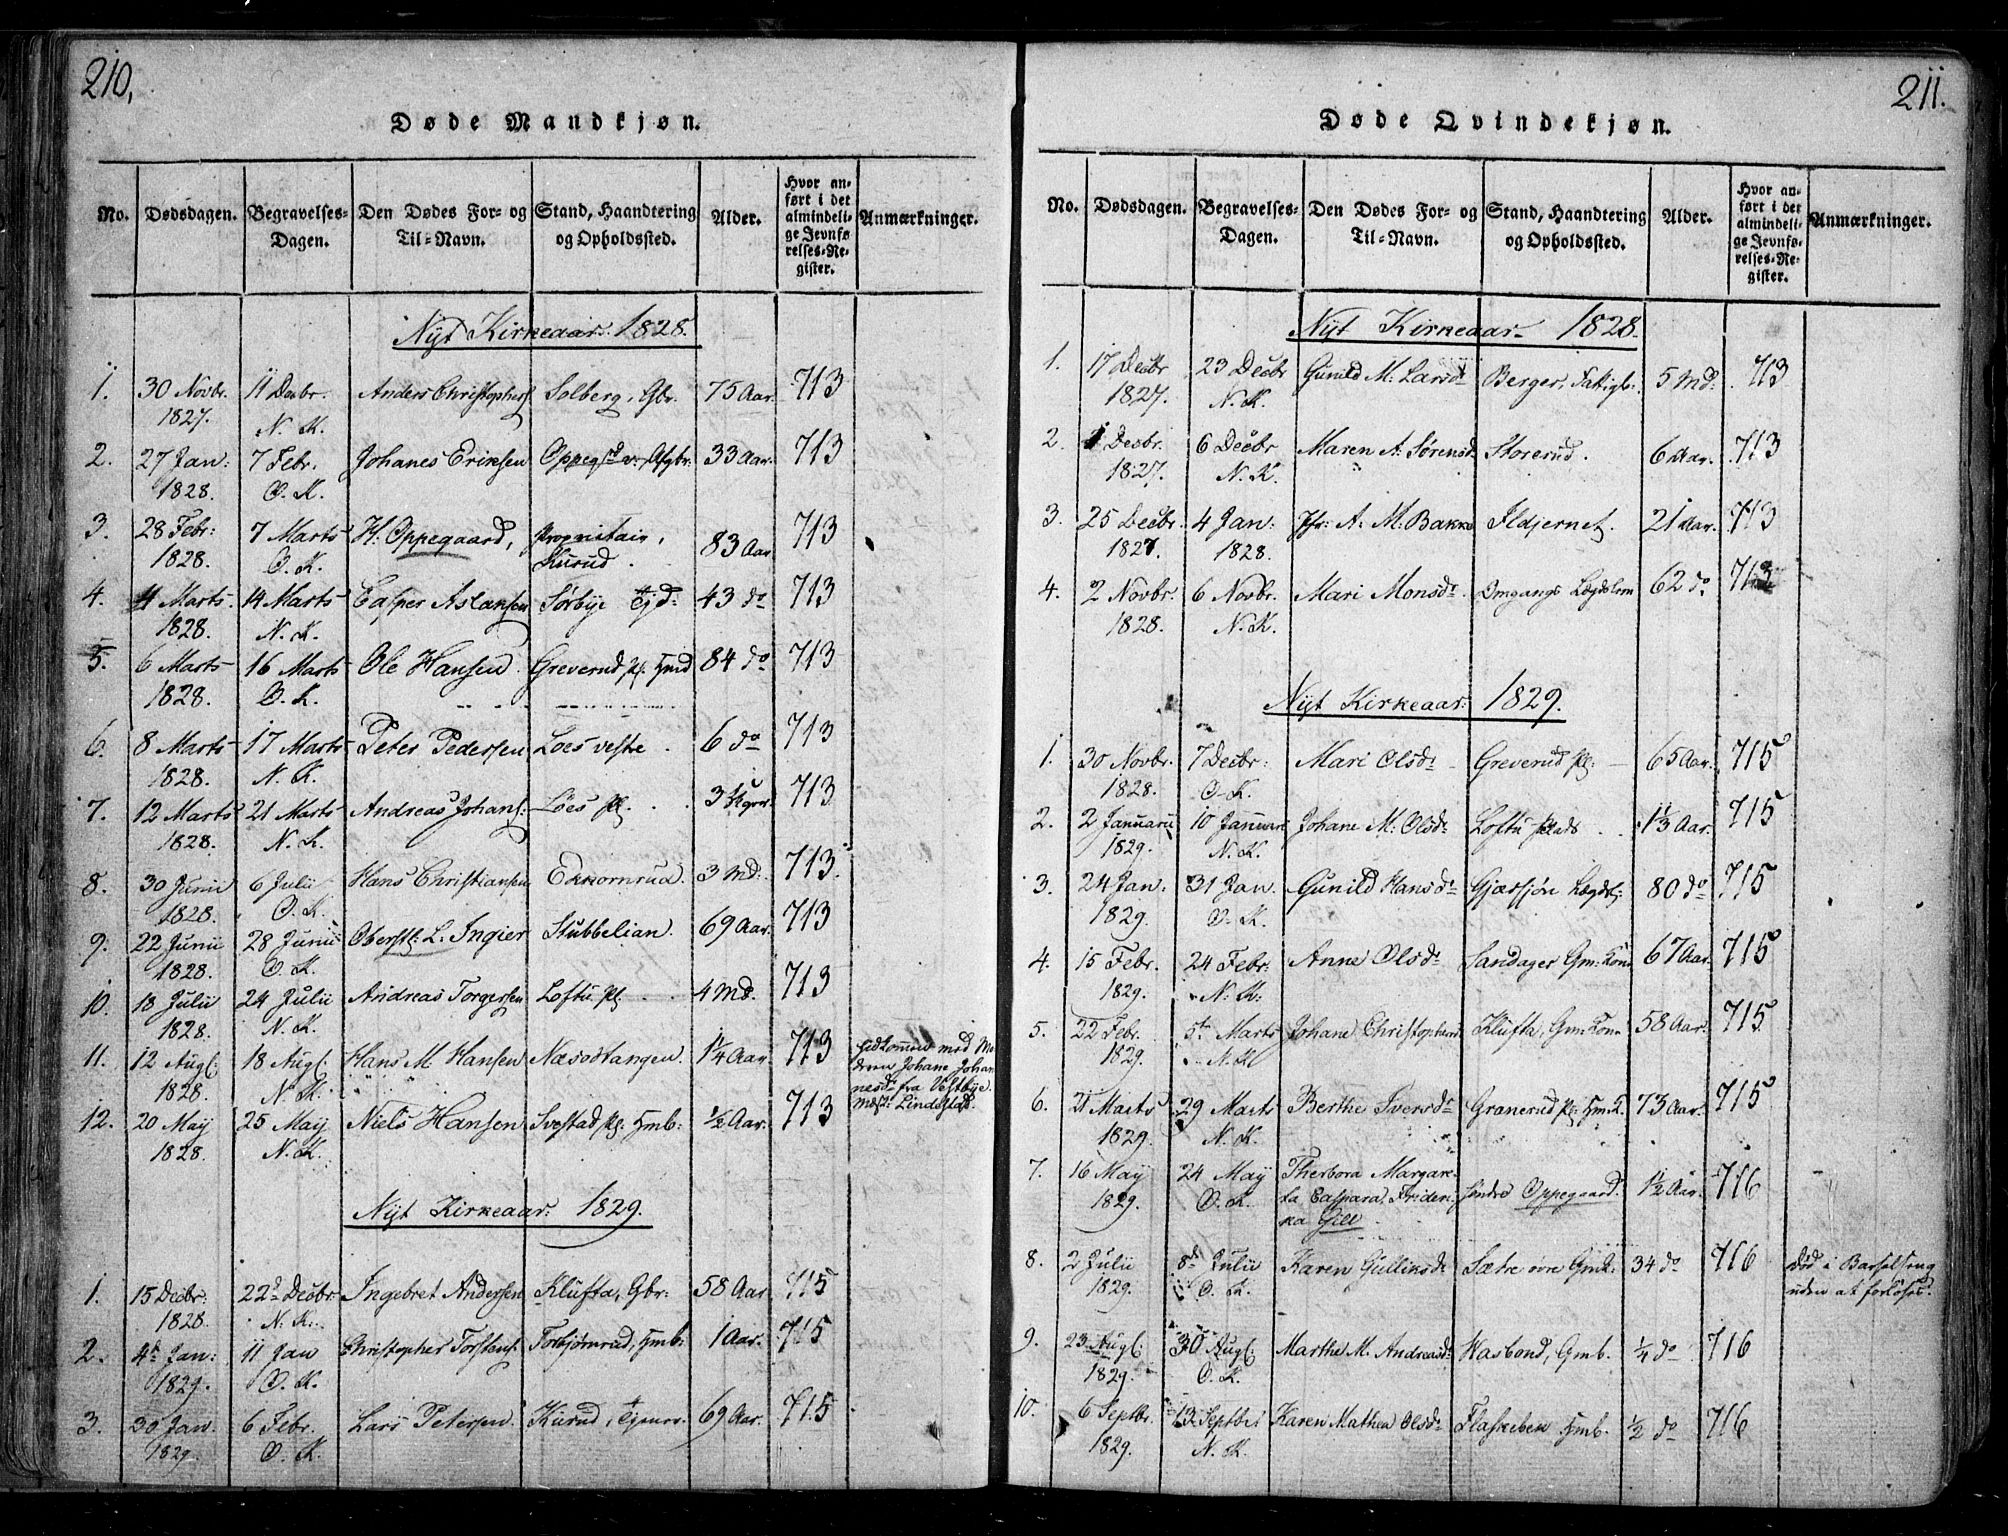 210.
Døde Mandkjøn.
No. Dødsdagen. Begravelses-Dagen. Den Dødes For- og Til-Navn. Stand, Haandtering og Opholdssted. Alder. Hvor anført i det almindelige Jevnførelses-Register. Anmærkninger.
Nyt Kirkeaar. 1828.
1. 30 Novbr. 11 Decbr. Anders Christophers Solberg, Gbr. 75 Aar. 713
1827. N. K.
2. 27 Jan: 7 Febr. Johanes Eriksen 33 Aar. 713
1828. O. K.
3. 28 Febr: 7 Marts H. Oppegaard, Proprietair, 83 Aar 713
1828. O. K. Kurud.
4. 4 Marts 14 Marts Casper Aslaksen Sørbye Ejd: 43 do 713
1828. N. K.
5. 6 Marts 16 Marts Ole Hansen Greverud, pl. Hmd 84 do 713
1828. O. K.
6. 8 Marts 17 Marts Peter Pedersen Loes vestre 6 do 713
1828. N. K.
7. 12 Marts 21 Marts Andreas Johans: Löes pl. 3 713
1828. N. K.
8. 30 Junii 6 Julii Hans Christiansen Ekkornrud. 3 Md: 713.
1828. O. K.
9. 22 Junii 28 Junii Oberstl: L. Ingier Stubbelian. 69 Aar. 713
1828. O. K.
10. 18 Julii 24 Julii Andreas Torgersen Loftu pl 4 Md. 713
1828. N. K.
11. 12 Augl: 18 Augl: Hans M. Hansen Næsodtangen. 1¼ Aar. 713 hidkommen med Mo
1828. N. K. deren Johane Johan
nesdr fra Vestbye.
12. 20 May 25 May Niels Hansen Svestad pl. Hmb: ½ Aar. 713
1828. N. K.
Nyt Kirkeaar: 1829.
1. 15 Decbr: 22d Decbr. Ingebret Andersen Klufta, Gbr: 58 Aar. 715
1828. N. K.
2. 4d Jan: 11 Jan Christopher Torstens: Torbjørnrud, Hmb: 1 Aar. 715
1829. O. K.
3. 30 Jan 6 Febr. Lars Petersen. Kurud, 69 Aar. 715
1829. O. K.
211.
Døde Qvindekjøn.
No. Dødsdagen. Begravelses-Dagen. Den Dødes For- og Til-Navn. Stand, Haandtering og Opholdssted. Alder. Hvor anført i det almindelige Jevnførelses-Register. Anmærkninger.
Nyt Kirkeaar 1828.
1. 17 Decbr 23 Decbr Gunild M: Larsdr Berger, Fattigl: 5 Md: 713
1827. N. K.
2. 1 Decbr. 6 Decbr Maren A. Sørensd. Storerud. 6 Aar. 713
1827. N. K.
3. 25 Decbr. 4 Jan: Jfr: A: M: Bakke Ildjernet. 21 Aar. 713
1827. 1828.
4. 2 Novbr. 6 Novbr. Mari Monsdr. Omgangs Lægdslem 62 do 713
1828. N. K.
Nyt Kirkeaar: 1829.
1. 30 Novbr. 7 Decbr: Mari Olsdr Greverud pl: 65 Aar. 715
1828. O. K.
2. 2 Januarii 10 Januari Johane M: Olsdr Loftu Plads 1⅓ Aar. 715
1829. N. K.
3. 24 Jan. 31 Jan Gunild Hansdr Gjærsjøn Lægdsl: 80 do 715
1829. O. K.
4. 15 Febr. 24 Febr: Anne Olsdr Sandager Gm: Kone 67 Aar. 715
1829. N. K:
5. 22 Febr. 5te Marts Johane Christophersd Klufta, Gm: Kone 58 Aar. 715.
1829. N. K
6. 21 Marts 29 Marts Berthe Iversdr Granerud pl: Hmk. 73 Aar. 715
1829. N. K.
7. 16 May 24 May Therbora Margare-
1829. O. K. ta Caspara Frideri- søndre Oppegaard. 1½ Aar. 716
ka Gill
8. 2 Julii 8de Julii Karen Gulliksdr Sætre övre Gmk. 34 do 716 død i Barselseng
1829. O. K. uden at forløses.
9. 23 Augl: 30 Augl: Marthe M. Andreasd: Hasbond, Gmb. ¼ do 716
1829. O. K.
10. 6 Septbr. 13 Septber Karen Mathea Olsdr Flaskeben Hmb. ½ do 716
1829. N. K.